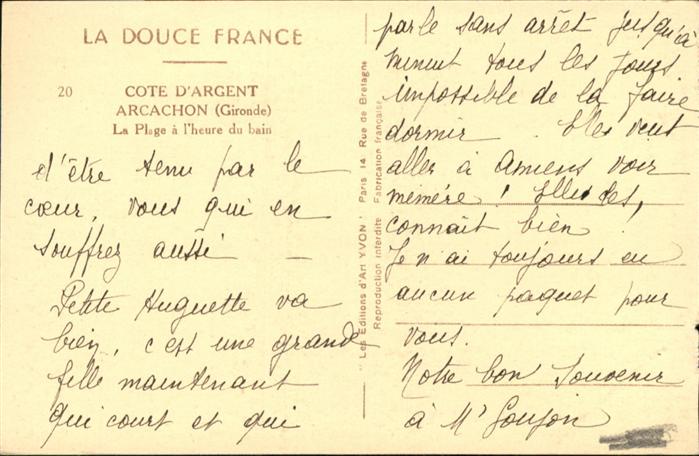 LA DOUCE FRANCE
20
COTE D'ARGENT
ARCACHON (Gironde)
La Plage à l'heure du bain
d'être tenu par le
cœur, vous qui en
souffrez aussi —
Petite Huguette va
bien, c'est une grande
fille maintenant
qui court et qui
"Les Editions d'Art YVON" Paris 14, Rue de Bretagne
Reproduction Interdite Fabrication française
parle sans arrêt jusqu'à
minuit tous les jours
impossible de la faire
dormir. Elle veut
aller à Amiens voir
mémére! Elle
connait bien
Je n'ai toujours eu
aucun paquet pour
vous.
Notre bon souvenir
à Mr Goujon